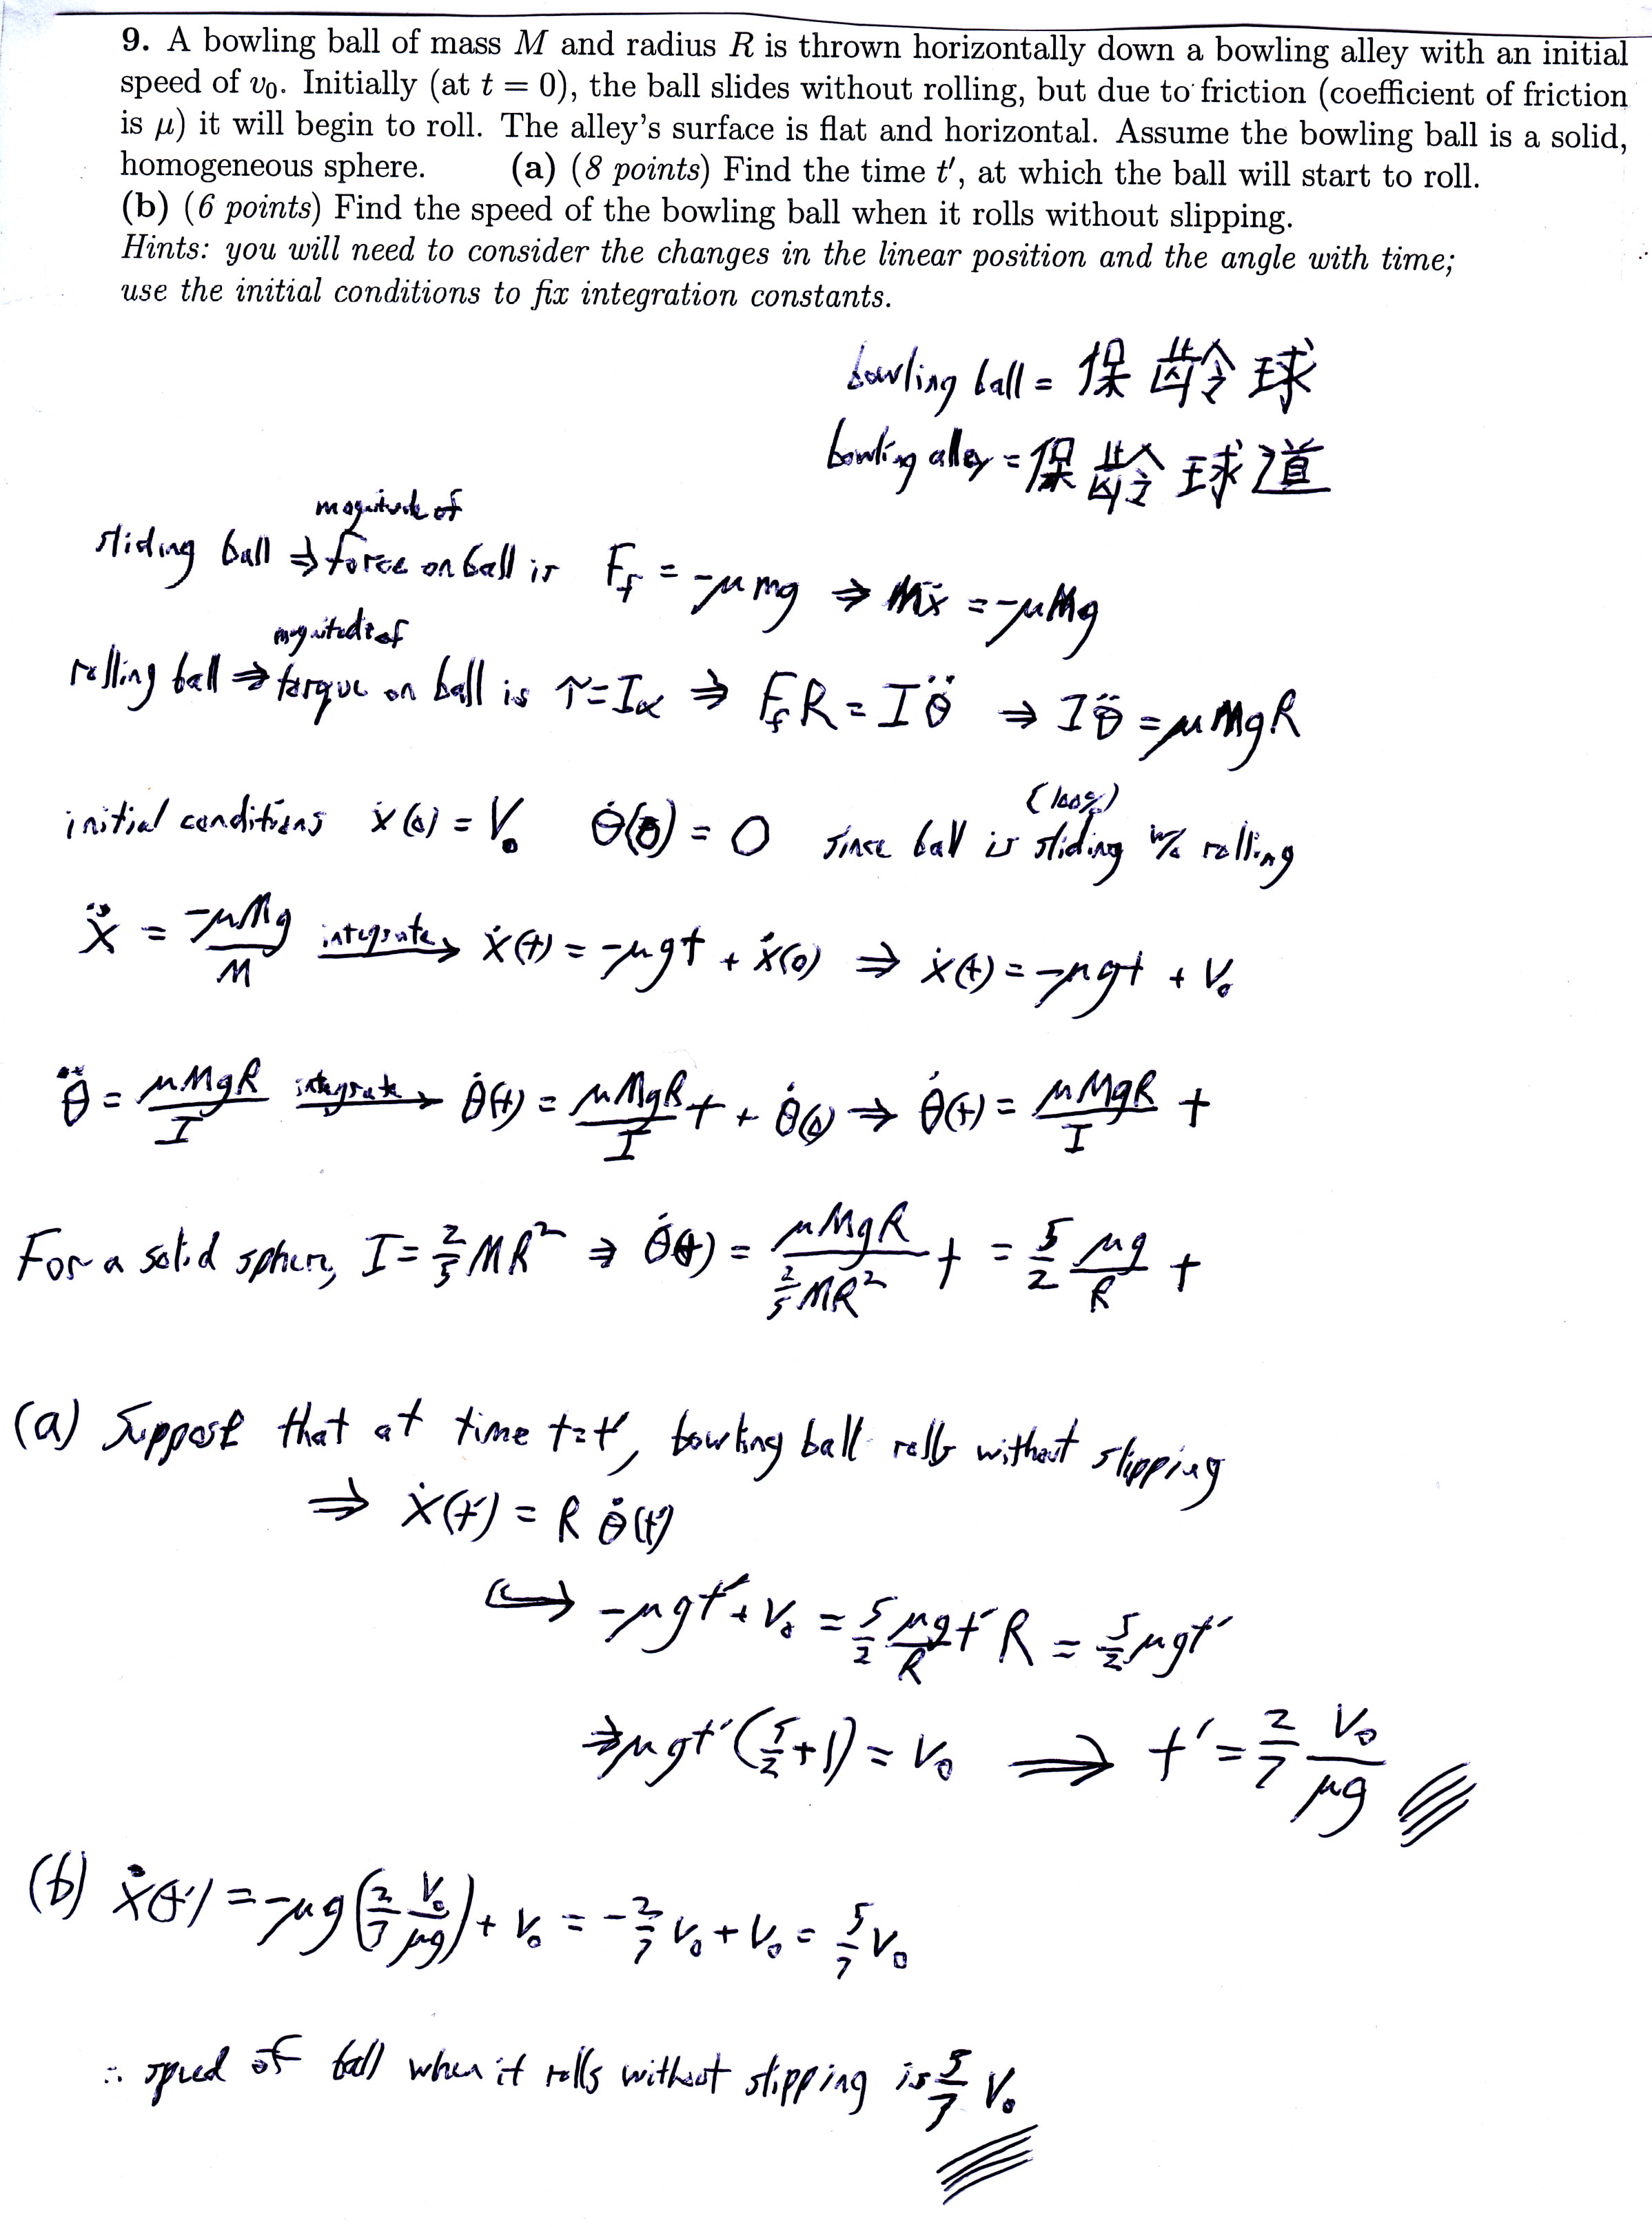 9. A bowling ball of mass M and radius R is thrown horizontally down a bowling alley with an initial
speed of v₀. Initially (at t = 0), the ball slides without rolling, but due to friction (coefficient of friction
is μ) it will begin to roll. The alley's surface is flat and horizontal. Assume the bowling ball is a solid,
homogeneous sphere. (a) (8 points) Find the time t′, at which the ball will start to roll.
(b) (6 points) Find the speed of the bowling ball when it rolls without slipping.
Hints: you will need to consider the changes in the linear position and the angle with time;
use the initial conditions to fix integration constants.
bowling ball = 保龄球
bowling alley = 保龄球道
magnitude of
sliding ball ⇒ force on ball is F_f = -μmg ⇒ Mẍ = -μMg
magnitude of
rolling ball ⇒ torque on ball is τ = Iα ⇒ F_f R = Iθ̈ ⇒ Iθ̈ = μMgR
(100%)
initial conditions ẋ(0) = V₀ θ̇(0) = 0 since ball is sliding w/o rolling
ẍ = -μMg/M integrate→ ẋ(t) = -μgt + ẋ(0) ⇒ ẋ(t) = -μgt + V₀
θ̈ = μMgR/I integrate→ θ̇(t) = μMgR/I t + θ̇(0) ⇒ θ̇(t) = μMgR/I t
For a solid sphere, I = 2/5 MR² ⇒ θ̇(t) = μMgR/(2/5 MR²) t = 5/2 μg/R t
(a) Suppose that at time t=t′, bowling ball rolls without slipping
⇒ ẋ(t′) = R θ̇(t′)
↪ -μgt′ + V₀ = 5/2 μgt′/R R = 5/2 μgt′
⇒ μgt′(5/2 + 1) = V₀ ⇒ t′ = 2/7 V₀/μg
(b) ẋ(t′) = -μg(2/7 V₀/μg) + V₀ = -2/7 V₀ + V₀ = 5/7 V₀
∴ speed of ball when it rolls without slipping is 5/7 V₀